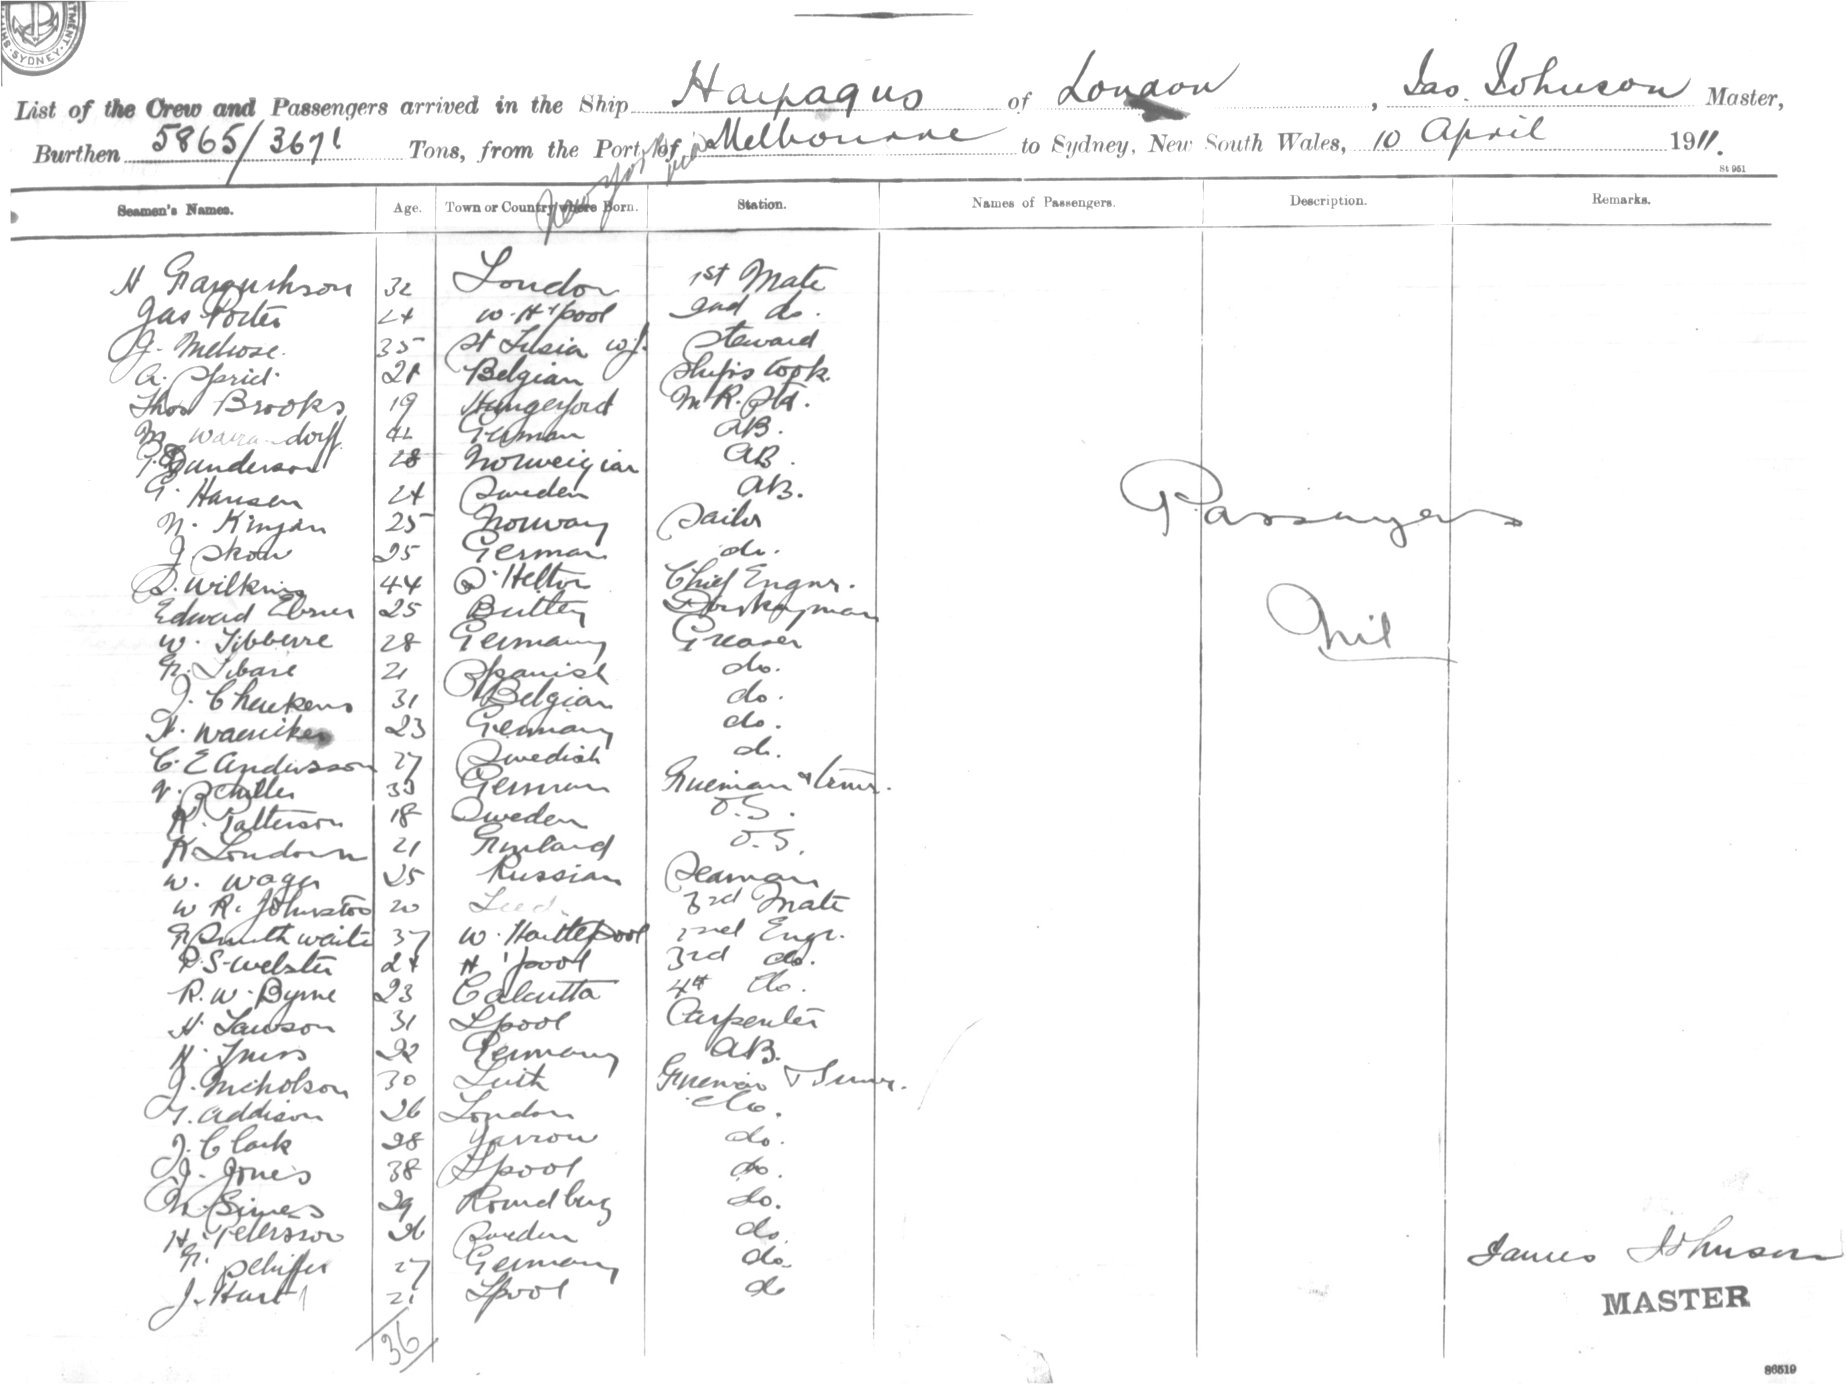 SYDNEY
List of the Crew and Passengers arrived in the Ship Harpagus of London, Jas. Johnson Master,
Burthen 5865/3671 Tons, from the Port of New York via Melbourne to Sydney, New South Wales, 10 April 1911.
St 951
Seamen's Names. Age. Town or Country where Born. Station. Names of Passengers. Description. Remarks.
H 32 London 1st Mate
Jas Porter 24 W. H'pool 2nd do.
J. Melrose. 35 St Lusia W.I. Steward
A. 21 Belgian Ship's Cook.
Thos Brooks 19 Hungerford M. R. Std.
M. German AB.
Gunderson 28 Norweigian AB.
G. Hansen 24 Sweden AB.
N. 25 Norway Sailor
J. Skow 25 German do.
Passengers
S. Wilkins 44 Chief Engnr.
Edward 25 Donkeyman
Nil
W. 28 Germany Greaser
21 Spanish do.
J. 31 Belgian do.
23 Germany do.
C. E Andersson 27 Swedish do.
33 German Fireman & Trmr.
R. Patterson 18 Sweden O.S.
K 21 Finland O.S.
W. Wager 25 Russian Seaman
W R. Johnston 20 3rd Mate
Smithwaite 37 W. Hartlepool 2nd Engr.
S. Webster 24 H'pool 3rd do.
R. W. Byrne 23 Calcutta 4th do.
H. Lawson 31 Lpool Carpenter
22 Germany AB.
J. Nicholson 30 Leith Fireman & Trmr.
Addison 26 London do.
J. Clark 28 Yarrow do.
J. Jones 38 Lpool do.
29 do.
H. Petersson 26 Sweden do.
27 Germany do.
J. Hart 21 Lpool do
36
James Johnson
MASTER
86519